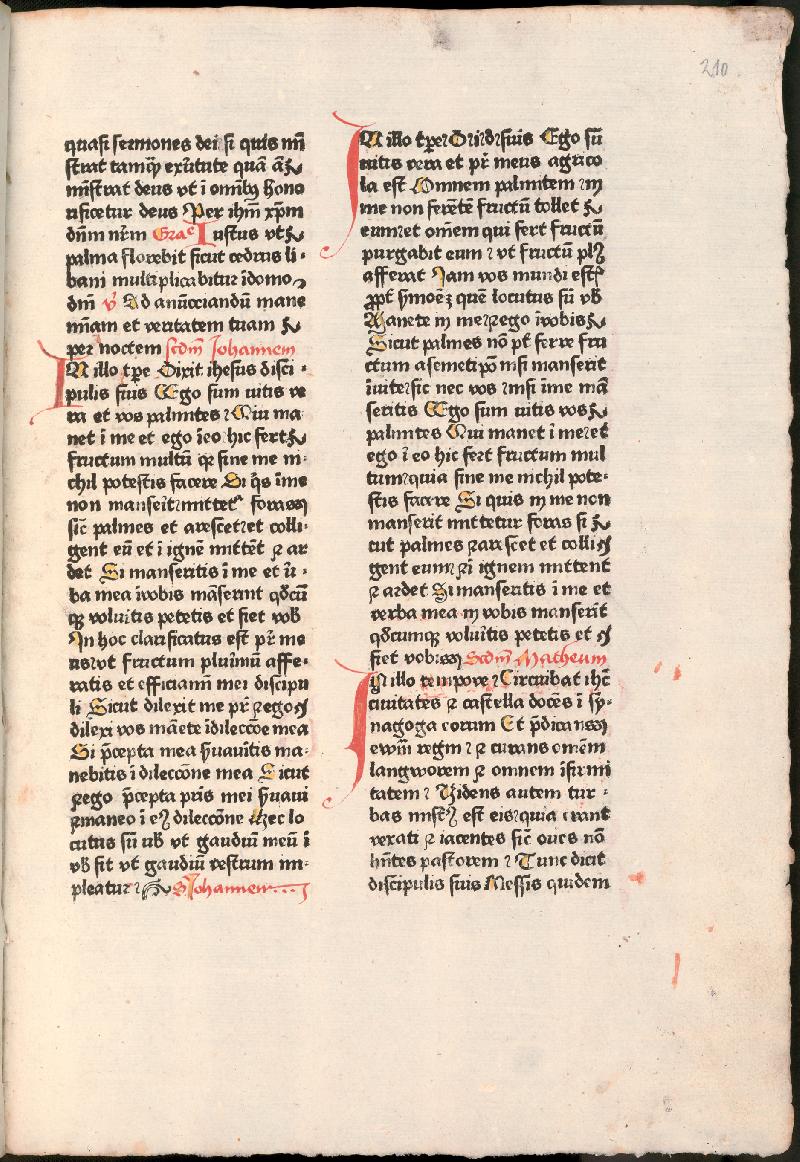 210
quasi sermones dei si quis mi
strat tamq̄ exv̄tute quā
mīstrat deus vt ī omībꝫ hono
rificetur deus Per ihm̄ xp̄m
dn̄m nr̄m Grac Iustus vt
palma florebit sicut cedrus li-
bani multiplicabitur īdomo
dn̄i v̄ Ad anūcciandū mane
mīam et veritatem tuam
per noctem scdm̄ Johannem
IN illo tp̄e Dixit ihesus disci-
pulis suis Ego sum vitis ve
ra et vos palmites Qui ma
net ī me et ego īeo hic fert
fructum multū qꝛ sine me ni-
chil potestis facere Si q̄s īme
non manserit mittetʳ foras
sic̄ palmes et arescet et colli-
gent eū et ī ignē mittēt ꝛ ar
det Si manseritis ī me et v̄-
ba mea īvobis māserint qd̄cū
qꝫ volueritis petetis et fiet vob̄
In hoc clarificatus est pr̄ me
us vt fructum plurimū affe-
ratis et efficiamī mei discipu
li Sicut dilexit me pr̄ ꝛ ego
dilexi vos māete īdileccōe mea
Si p̄cepta mea s̄uaūitis ma-
nebitis ī dileccōne mea Sicut
ꝛ ego p̄cepta pr̄is mei s̄uaui
ꝛ maneo ī eꝰ dileccōne Hec lo
cutus sū vb̄ vt gaudiū meū ī
vb̄ sit vt gaudiū vestrum im-
pleatur S Johannem
IN illo tp̄e Ego sū
vitis vera et pr̄ meus agrico
la est Omnem palmitem in
me non ferētē fructū tollet
eum et om̄em qui fert fructū
purgabit eum vt fructū plꝰ
afferat Jam vos mundi estꝭ
ꝓpt̄ s̄moēꝫ quē locutus sū vb̄
Manete in me ꝛ ego īvobis
Sicut palmes nō pt̄ ferre fru
ctum asemetip̄o nisi manserit
īvite sic nec vos nisi īme mā
seritis Ego sum vitis vos
palmites Qui manet ī me et
ego ī eo hic fert fructum mul
tum quia sine me nichil pote-
stis facere Si quis in me non
manserit mittetur foras si
cut palmes ꝛ arescet et colli
gent eum ꝛ ī ignem mittent
ꝛ ardet Si manseritis ī me et
verba mea in vobis manserīt
qd̄cumqꝫ voluītis petetis et
fiet vobis Scdm̄ Matheum
IN illo tempore Circuibat ihc̄
ciuitates ꝛ castella docēs ī sy-
nagoga eorum Et p̄dicans
ewm̄ regni ꝛ curans omēm
langworem ꝛ omnem īfirmi
tatem Videns autem tur-
bas mistꝰ est eis quia erant
vexati ꝛ iacentes sic̄ oues nō
hn̄tes pastorem Tunc dicit
discipulis suis Messis quidem